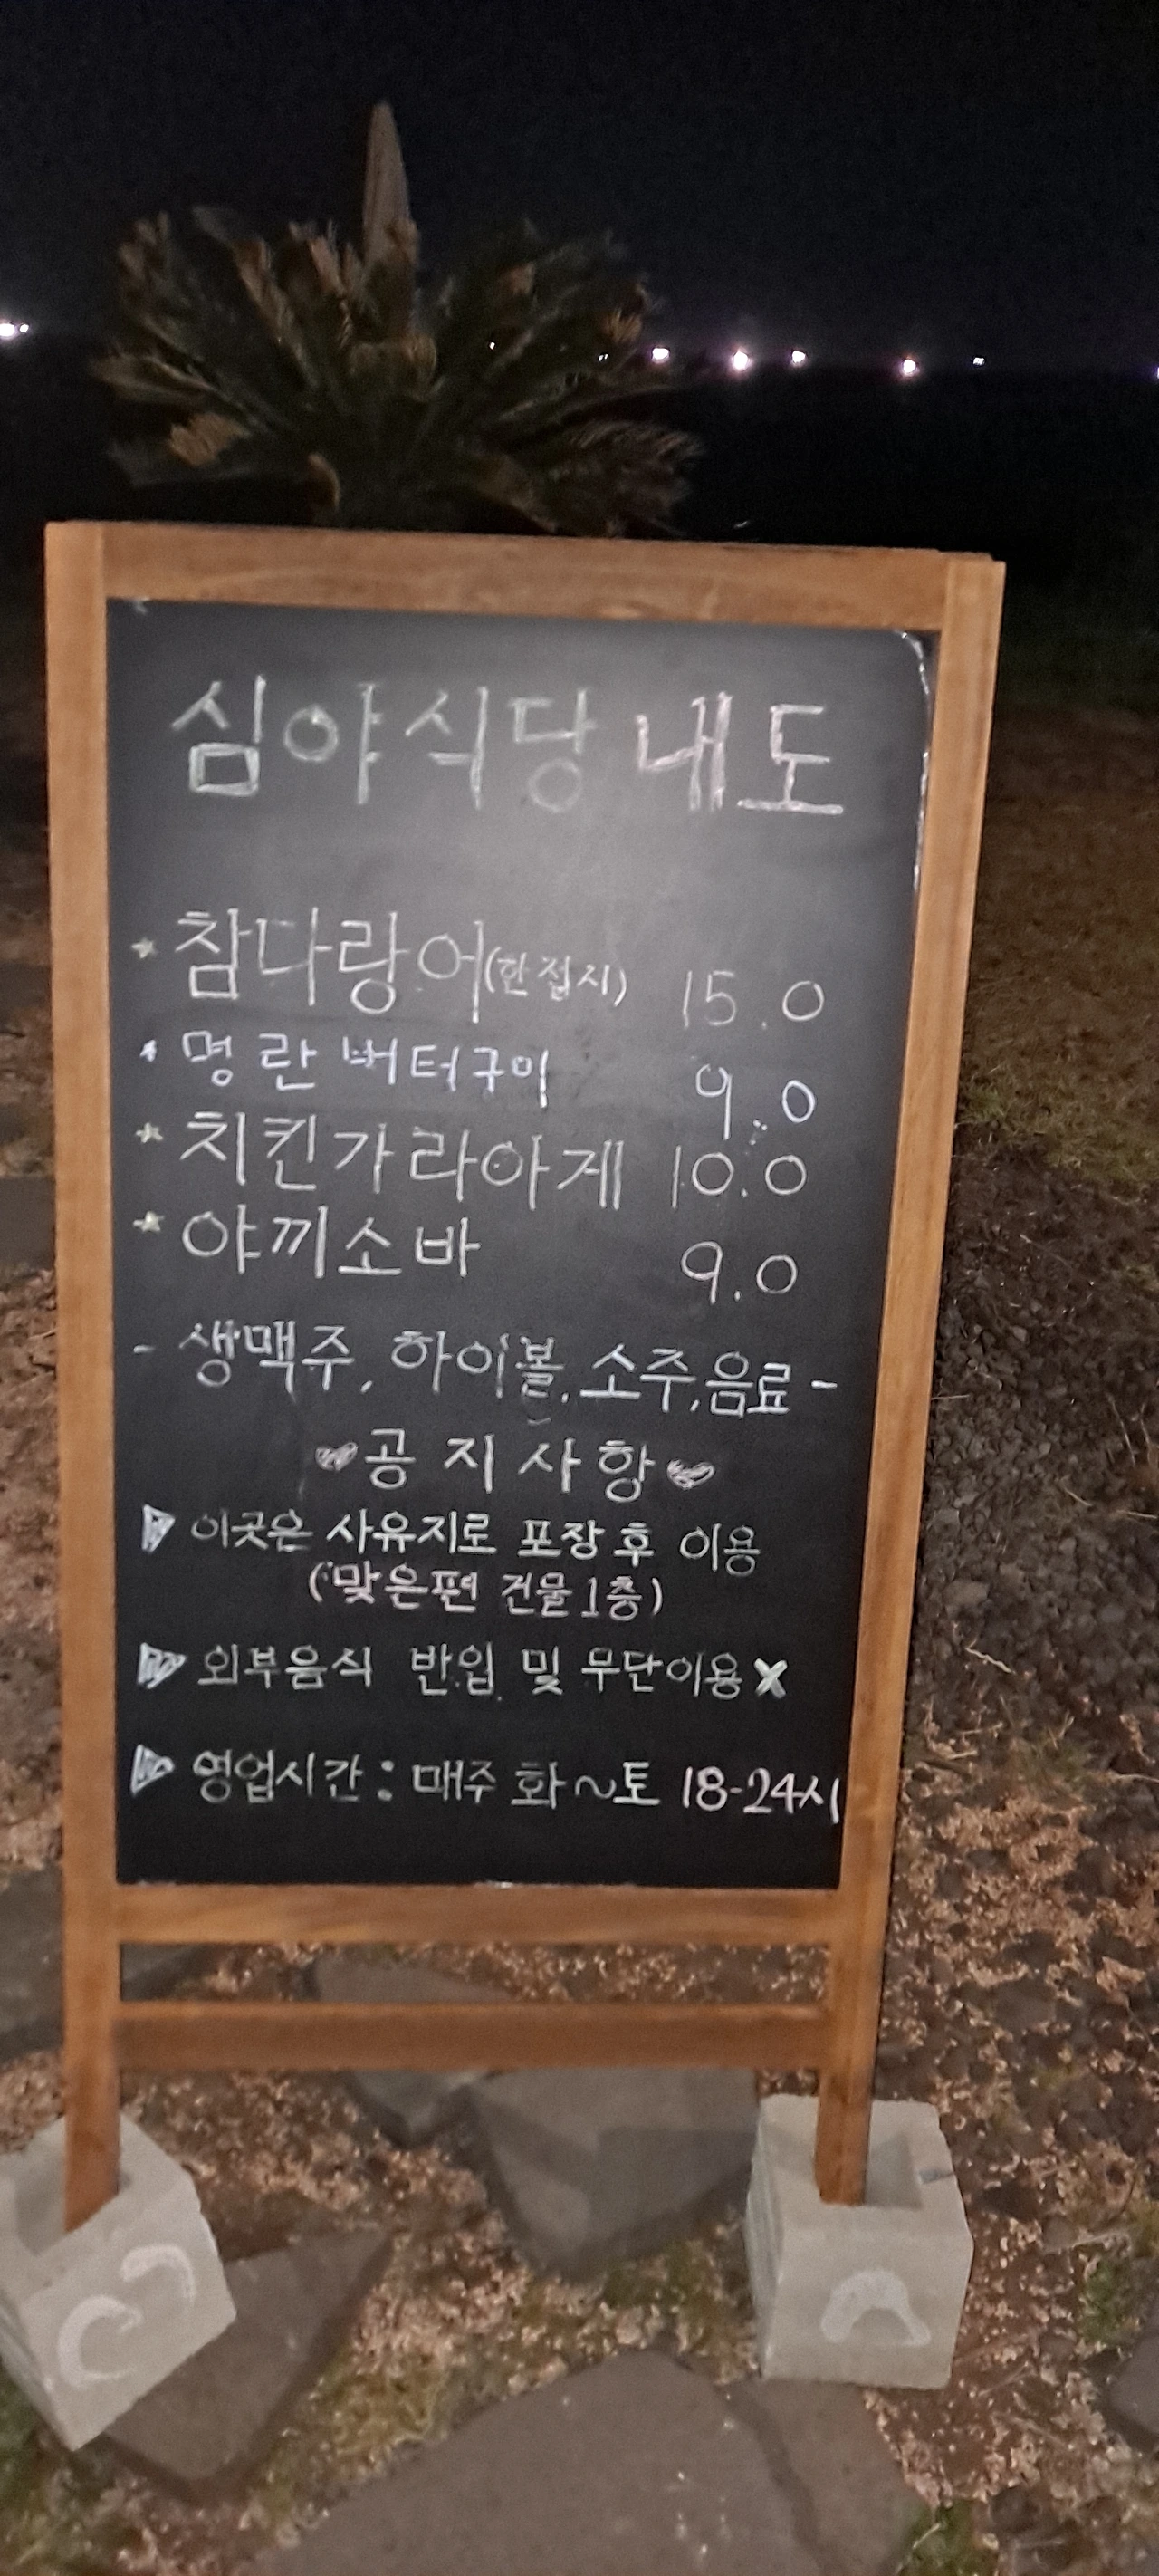 심야식당 내도
* 참다랑어(한접시) 15.0
* 명란버터구이 9.0
* 치킨가라아게 10.0
* 야끼소바 9.0
- 생맥주, 하이볼, 소주, 음료 -
♥공지사항♥
▶ 이곳은 사유지로 포장 후 이용
(맞은편 건물 1층)
▶ 외부음식 반입 및 무단이용 X
▶ 영업시간 : 매주 화~토 18-24시